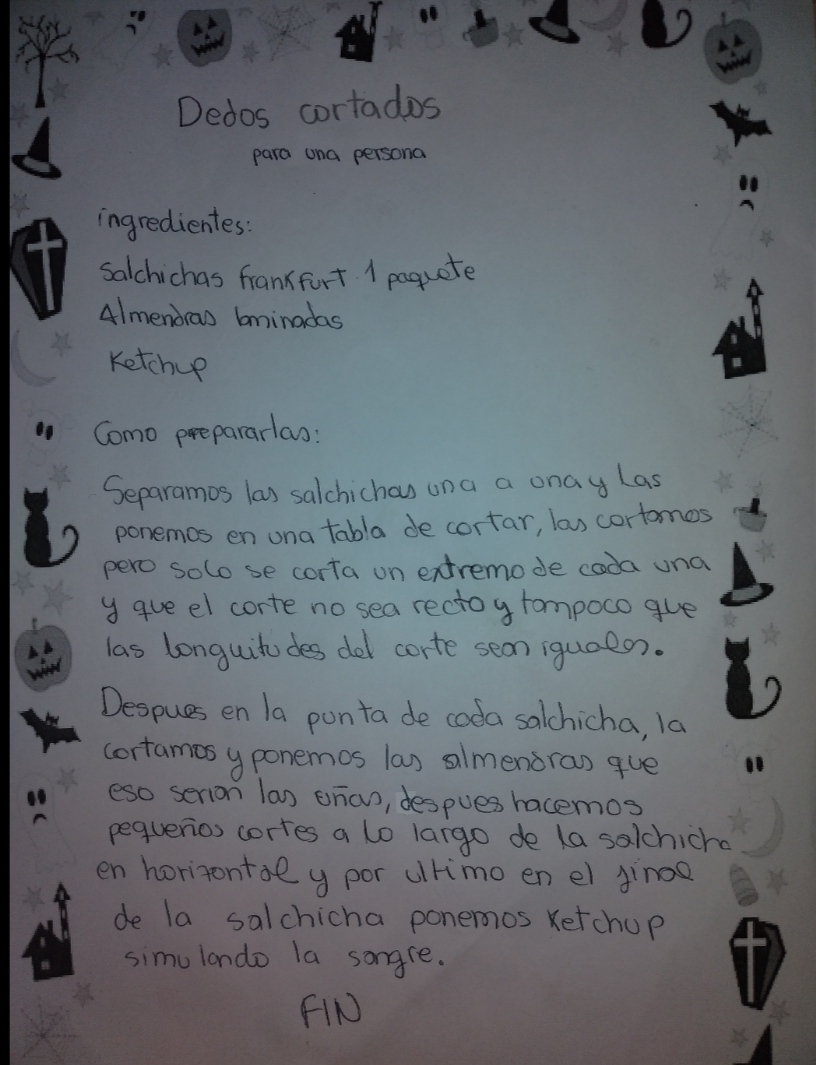 Dedos cortados
para una persona
ingredientes:
Salchichas frankfurt 1 paquete
Almendras laminadas
Ketchup
Como prepararlas:
Separamos las salchichas una a una y las
ponemos en una tabla de cortar, las cortamos
pero solo se corta un extremo de cada una
y que el corte no sea recto y tampoco que
las longuitudes del corte sean iguales.
Despues en la punta de cada salchicha, la
cortamos y ponemos las almendras que
eso serian las uñas, despues hacemos
pequeños cortes a lo largo de la salchicha
en horizontal y por ultimo en el final
de la salchicha ponemos Ketchup
simulando la sangre.
FIN